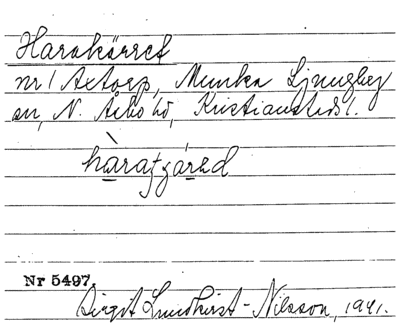 Harakärret
nr 1 Axtorp, Munka Ljungby
sn, N. Åsbo hd, Kristianstads l.
hàratjạ́rad
Nr 5497.
Birgit Lundkvist-Nilsson, 1941.